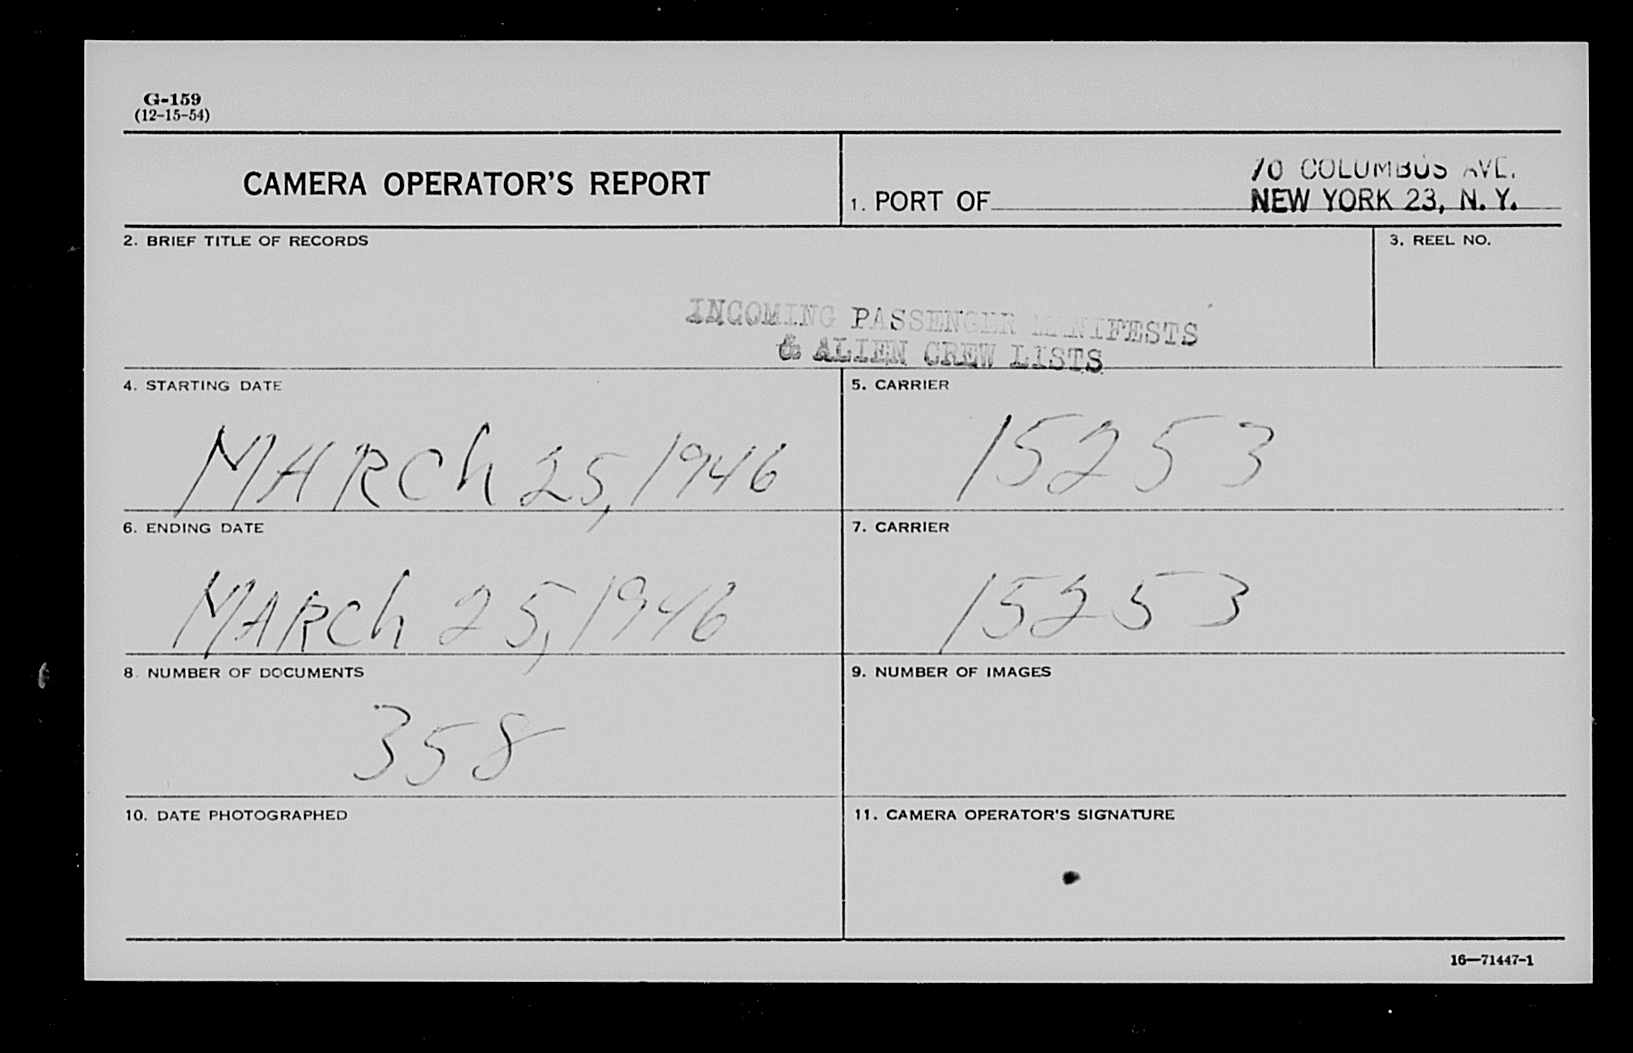 G-159
(12-15-54)
CAMERA OPERATOR'S REPORT
1. PORT OF
70 COLUMBUS AVE.
NEW YORK 23, N. Y.
2. BRIEF TITLE OF RECORDS
3. REEL NO.
INCOMING PASSENGER MANIFESTS
& ALIEN CREW LISTS
4. STARTING DATE
5. CARRIER
MARCh 25, 1946
15253
6. ENDING DATE
7. CARRIER
MARCh 25, 1946
15253
8. NUMBER OF DOCUMENTS
9. NUMBER OF IMAGES
358
10. DATE PHOTOGRAPHED
11. CAMERA OPERATOR'S SIGNATURE
16—71447-1